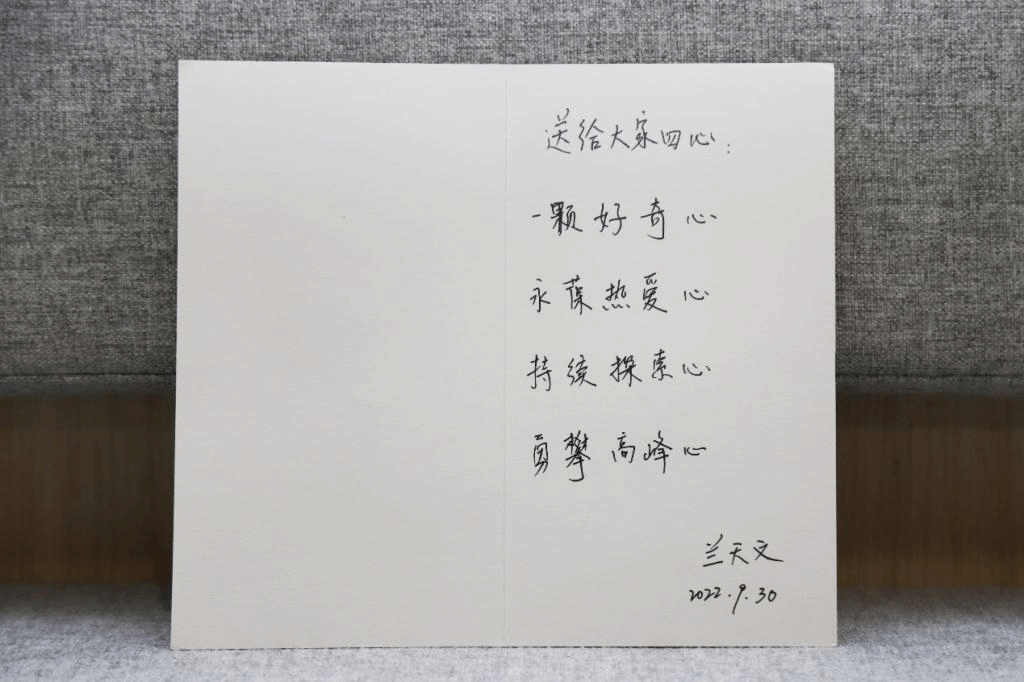 送给大家四心:
一颗好奇心
永葆热爱心
持续探索心
勇攀高峰心
兰天文
2022.9.30